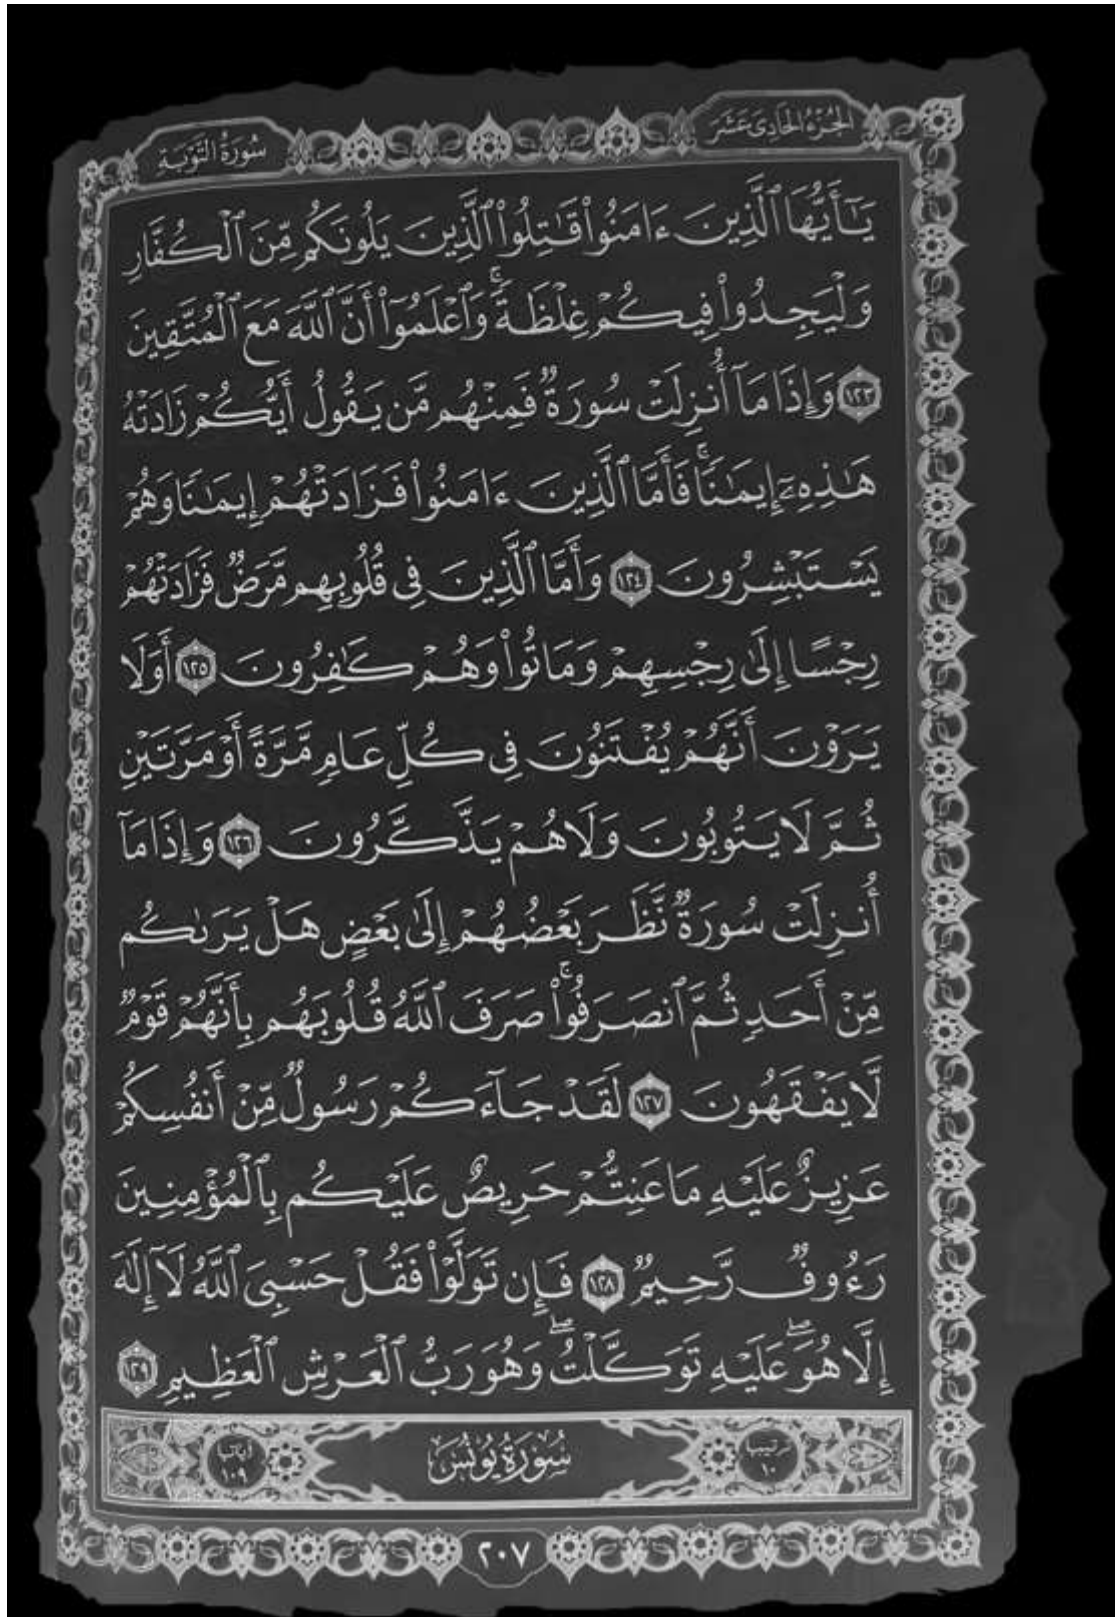 سُورَةُ التَّوْبَةِ
الجُزْءُ الحَادِىَ عَشَرَ
يَـٰٓأَيُّهَا ٱلَّذِينَ ءَامَنُوا۟ قَـٰتِلُوا۟ ٱلَّذِينَ يَلُونَكُم مِّنَ ٱلْكُفَّارِ
وَلْيَجِدُوا۟ فِيكُمْ غِلْظَةً ۚ وَٱعْلَمُوٓا۟ أَنَّ ٱللَّهَ مَعَ ٱلْمُتَّقِينَ
١٢٣ وَإِذَا مَآ أُنزِلَتْ سُورَةٌ فَمِنْهُم مَّن يَقُولُ أَيُّكُمْ زَادَتْهُ
هَـٰذِهِۦٓ إِيمَـٰنًا ۚ فَأَمَّا ٱلَّذِينَ ءَامَنُوا۟ فَزَادَتْهُمْ إِيمَـٰنًا وَهُمْ
يَسْتَبْشِرُونَ ١٢٤ وَأَمَّا ٱلَّذِينَ فِى قُلُوبِهِم مَّرَضٌ فَزَادَتْهُمْ
رِجْسًا إِلَىٰ رِجْسِهِمْ وَمَاتُوا۟ وَهُمْ كَـٰفِرُونَ ١٢٥ أَوَلَا
يَرَوْنَ أَنَّهُمْ يُفْتَنُونَ فِى كُلِّ عَامٍ مَّرَّةً أَوْ مَرَّتَيْنِ
ثُمَّ لَا يَتُوبُونَ وَلَا هُمْ يَذَّكَّرُونَ ١٢٦ وَإِذَا مَآ
أُنزِلَتْ سُورَةٌ نَّظَرَ بَعْضُهُمْ إِلَىٰ بَعْضٍ هَلْ يَرَىٰكُم
مِّنْ أَحَدٍ ثُمَّ ٱنصَرَفُوا۟ ۚ صَرَفَ ٱللَّهُ قُلُوبَهُم بِأَنَّهُمْ قَوْمٌ
لَّا يَفْقَهُونَ ١٢٧ لَقَدْ جَآءَكُمْ رَسُولٌ مِّنْ أَنفُسِكُمْ
عَزِيزٌ عَلَيْهِ مَا عَنِتُّمْ حَرِيصٌ عَلَيْكُم بِٱلْمُؤْمِنِينَ
رَءُوفٌ رَّحِيمٌ ١٢٨ فَإِن تَوَلَّوْا۟ فَقُلْ حَسْبِىَ ٱللَّهُ لَآ إِلَـٰهَ
إِلَّا هُوَ ۖ عَلَيْهِ تَوَكَّلْتُ ۖ وَهُوَ رَبُّ ٱلْعَرْشِ ٱلْعَظِيمِ ١٢٩
ترتيبها ١٠
سُورَةُ يُونُسَ
آياتها ١٠٩
٢٠٧